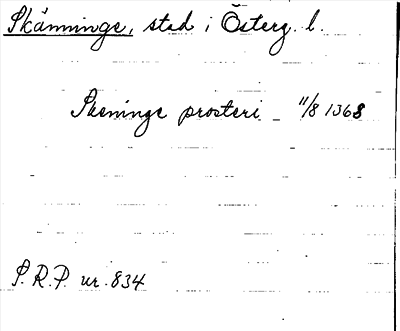 Skänninge, stad i Österg. l.
Skeninge prosteri _ 11/8 1368
S.R.P. nr. 834